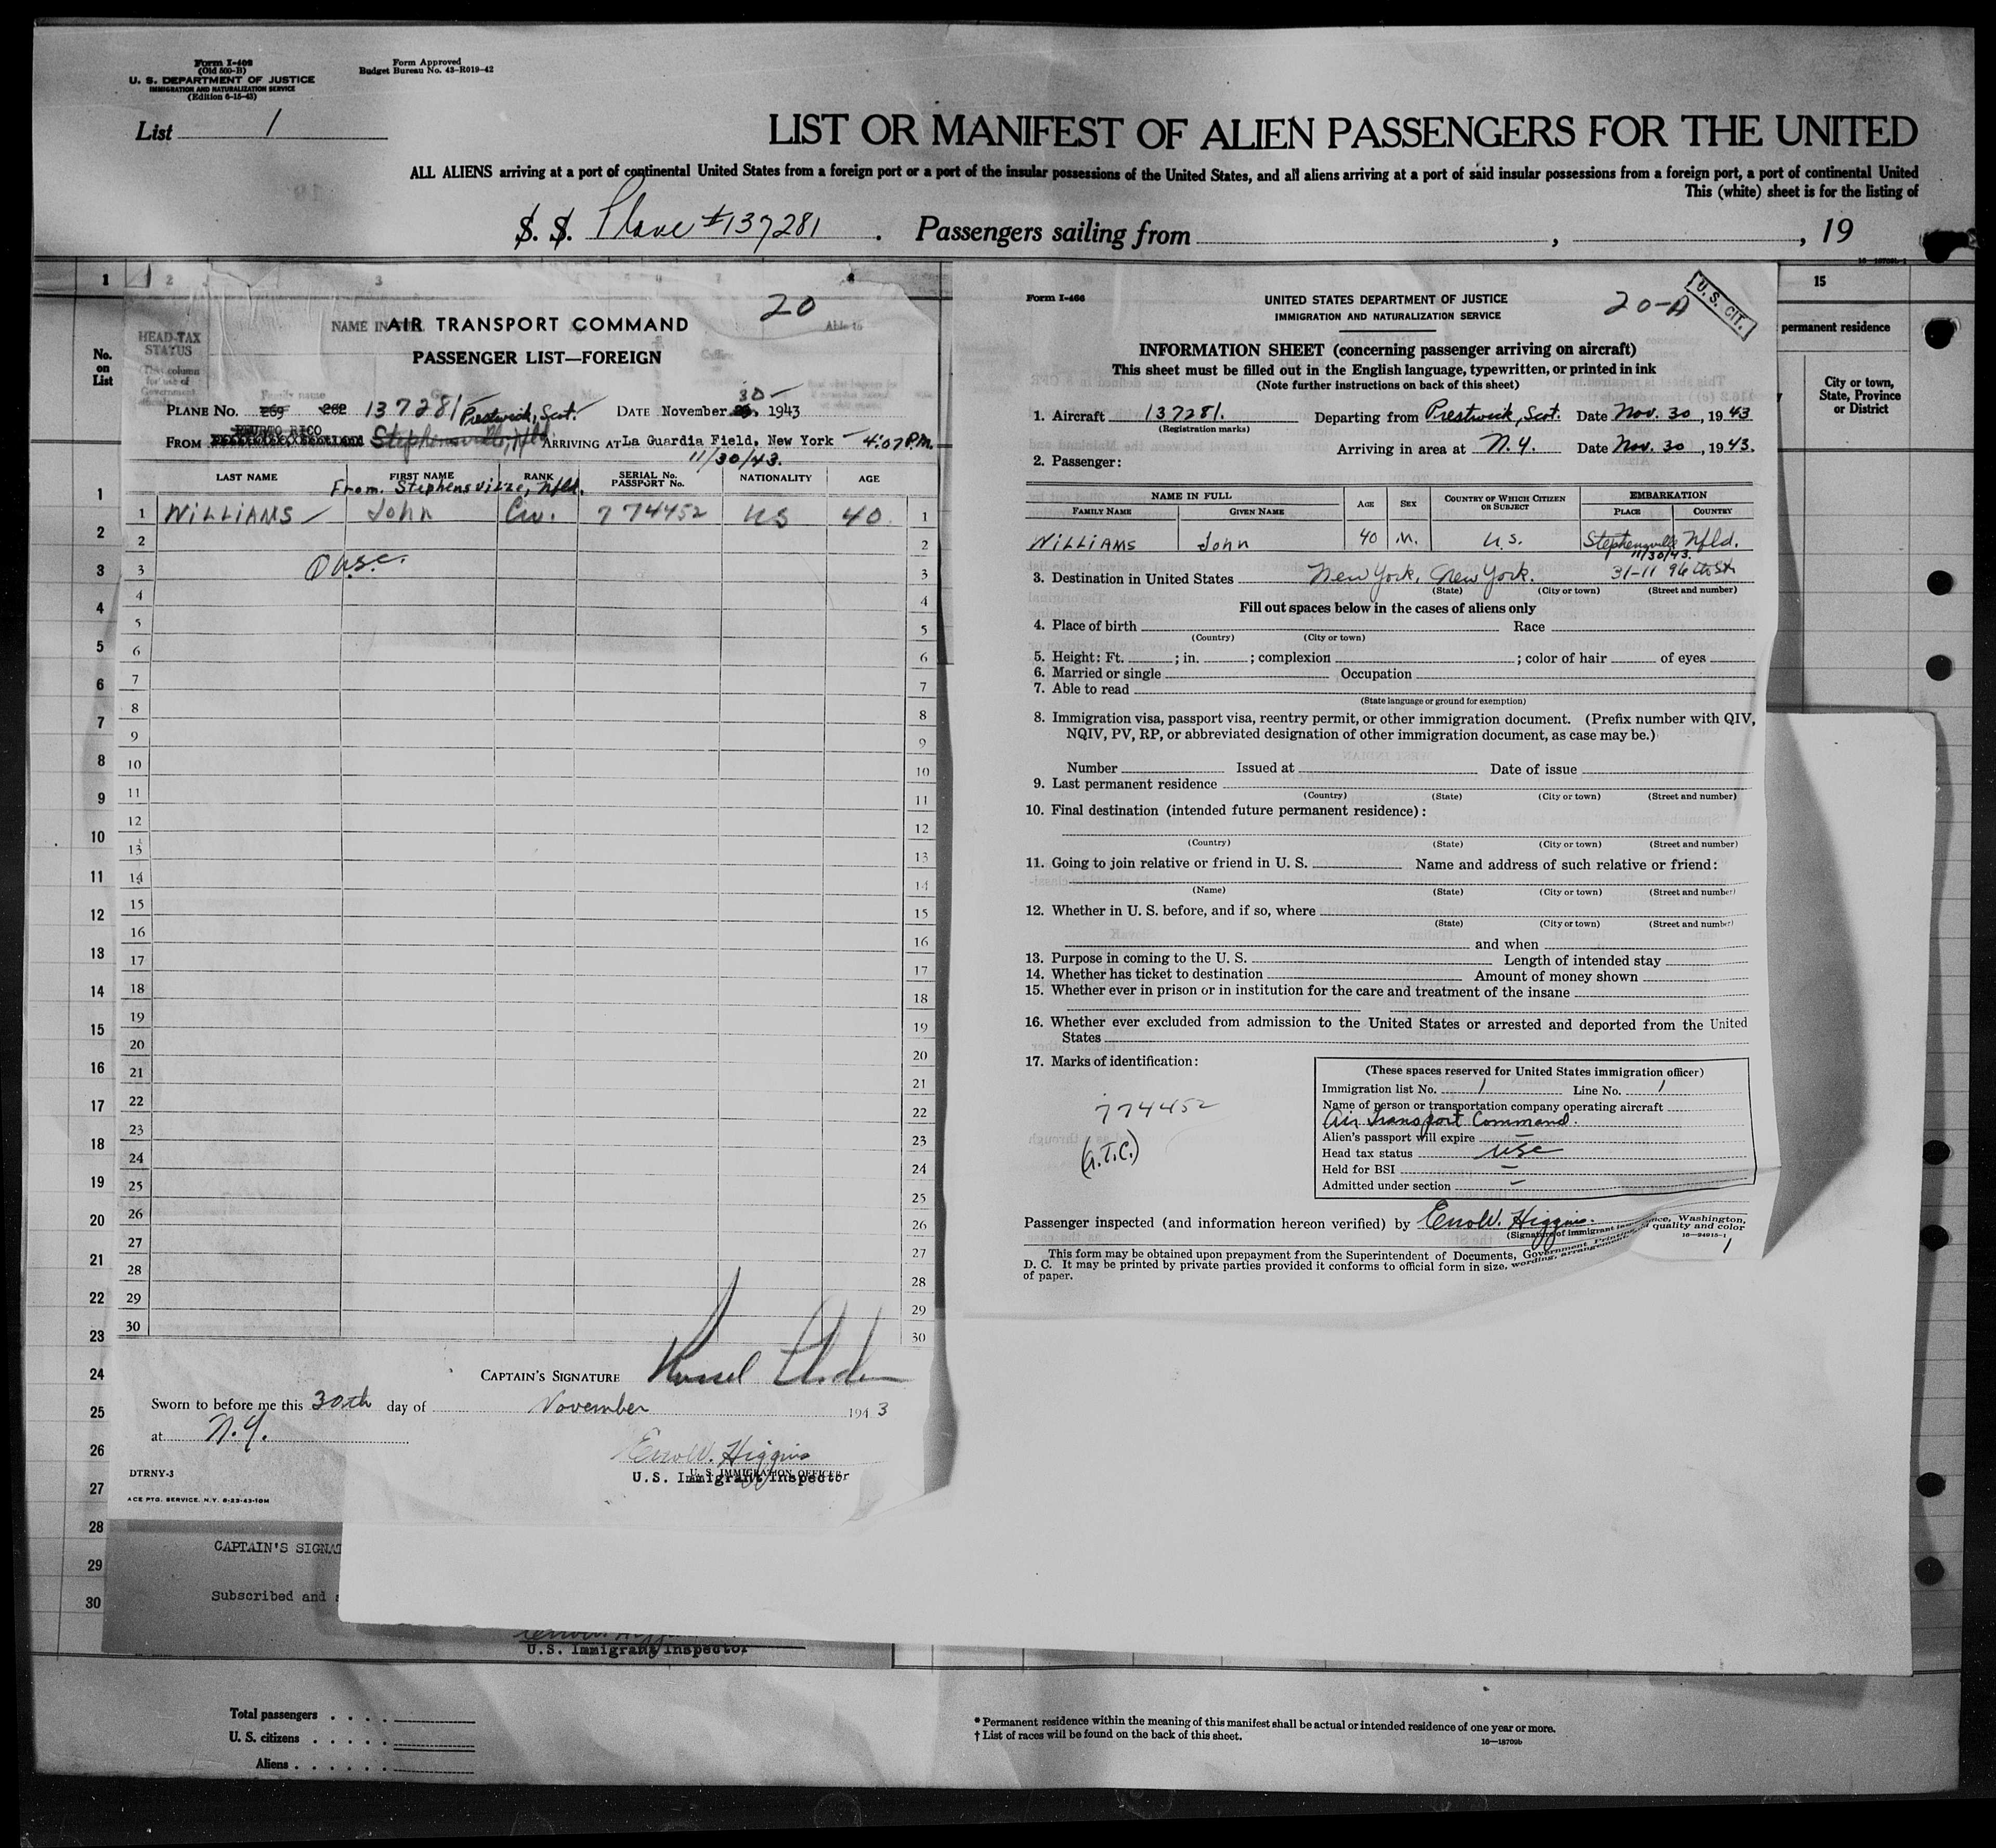 Form I-408
(Old 500-B)
U. S. DEPARTMENT OF JUSTICE
IMMIGRATION AND NATURALIZATION SERVICE
(Edition 6-15-43)
Form Approved
Budget Bureau No. 43-R019-42
List 1
LIST OR MANIFEST OF ALIEN PASSENGERS FOR THE UNITED
ALL ALIENS arriving at a port of continental United States from a foreign port or a port of the insular possessions of the United States, and all aliens arriving at a port of said insular possessions from a foreign port, a port of continental United
This (white) sheet is for the listing of
S. S. Plane #137281. Passengers sailing from , , 19
1 2 3 8
HEAD-TAX
STATUS
(This column
for use of
Government
officials only)
No.
on
List
NAME IN
Family name
20
AIR TRANSPORT COMMAND
PASSENGER LIST—FOREIGN
30
PLANE No. 269 262 137281 Prestwick, Scot. DATE November , 1943
PUERTO RICO
FROM Stephensville, Nfld ARRIVING AT La Guardia Field, New York - 4:07 P.M.
11/30/43.
LAST NAME FIRST NAME RANK SERIAL No. PASSPORT No. NATIONALITY AGE
From. Stephensville, Nfld.
1 WILLIAMS John Civ. 774452 US 40 1
2 2
3 3
4 4
5 5
6 6
7 7
8 8
9 9
10 10
11 11
12 12
13 13
14 14
15 15
16 16
17 17
18 18
19 19
20 20
21 21
22 22
23 23
24 24
25 25
26 26
27 27
28 28
29 29
30 30
CAPTAIN'S SIGNATURE
Sworn to before me this 30th day of November 1943
at N.Y.
Erro W. Higgins
U. S. IMMIGRATION OFFICER
U.S. Immigrant Inspector
DTRNY-3
ACE PTG. SERVICE, N.Y. 8-23-43-10M
CAPTAIN'S SIGNAT
Subscribed and
U.S. Immigrant Inspector
1
2
3
4
5
6
7
8
9
10
11
12
13
14
15
16
17
18
19
20
21
22
23
24
25
26
27
28
29
30
Form I-466
UNITED STATES DEPARTMENT OF JUSTICE
IMMIGRATION AND NATURALIZATION SERVICE
20-A
U. S. CIT.
INFORMATION SHEET (concerning passenger arriving on aircraft)
This sheet must be filled out in the English language, typewritten, or printed in ink
(Note further instructions on back of this sheet)
1. Aircraft 137281. Departing from Prestwick, Scot. Date Nov. 30, 1943
(Registration marks)
Arriving in area at N.Y. Date Nov. 30, 1943.
2. Passenger:
NAME IN FULL AGE SEX COUNTRY OF WHICH CITIZEN OR SUBJECT EMBARKATION
FAMILY NAME GIVEN NAME PLACE COUNTRY
WILLIAMS John 40 M. U.S. Stephensville Nfld.
11/30/43.
3. Destination in United States New York, New York. 31-11 96th St.
(State) (City or town) (Street and number)
Fill out spaces below in the cases of aliens only
4. Place of birth Race
(Country) (City or town)
5. Height: Ft. ; in. ; complexion ; color of hair of eyes
6. Married or single Occupation
7. Able to read
(State language or ground for exemption)
8. Immigration visa, passport visa, reentry permit, or other immigration document. (Prefix number with QIV,
NQIV, PV, RP, or abbreviated designation of other immigration document, as case may be.)
Number Issued at Date of issue
9. Last permanent residence
(Country) (State) (City or town) (Street and number)
10. Final destination (intended future permanent residence):
(Country) (State) (City or town) (Street and number)
11. Going to join relative or friend in U. S. Name and address of such relative or friend:
(Name) (State) (City or town) (Street and number)
12. Whether in U. S. before, and if so, where
(State) (City or town) (Street and number)
and when
13. Purpose in coming to the U. S. Length of intended stay
14. Whether has ticket to destination Amount of money shown
15. Whether ever in prison or in institution for the care and treatment of the insane
16. Whether ever excluded from admission to the United States or arrested and deported from the United
States
17. Marks of identification:
774452
(A.T.C.)
(These spaces reserved for United States immigration officer)
Immigration list No. 1 Line No. 1
Name of person or transportation company operating aircraft
Air Transport Command.
Alien's passport will expire —
Head tax status USC
Held for BSI —
Admitted under section —
Passenger inspected (and information hereon verified) by Erro W. Higgins.
(Signature of immigrant
This form may be obtained upon prepayment from the Superintendent of Documents, Government Printing nce, Washington,
D. C. It may be printed by private parties provided it conforms to official form in size, wording, arrangement, quality and color
of paper.
16—24915-1
1
15
permanent residence
City or town,
State, Province
or District
Total passengers
U. S. citizens
Aliens
* Permanent residence within the meaning of this manifest shall be actual or intended residence of one year or more.
† List of races will be found on the back of this sheet.
16—18709b